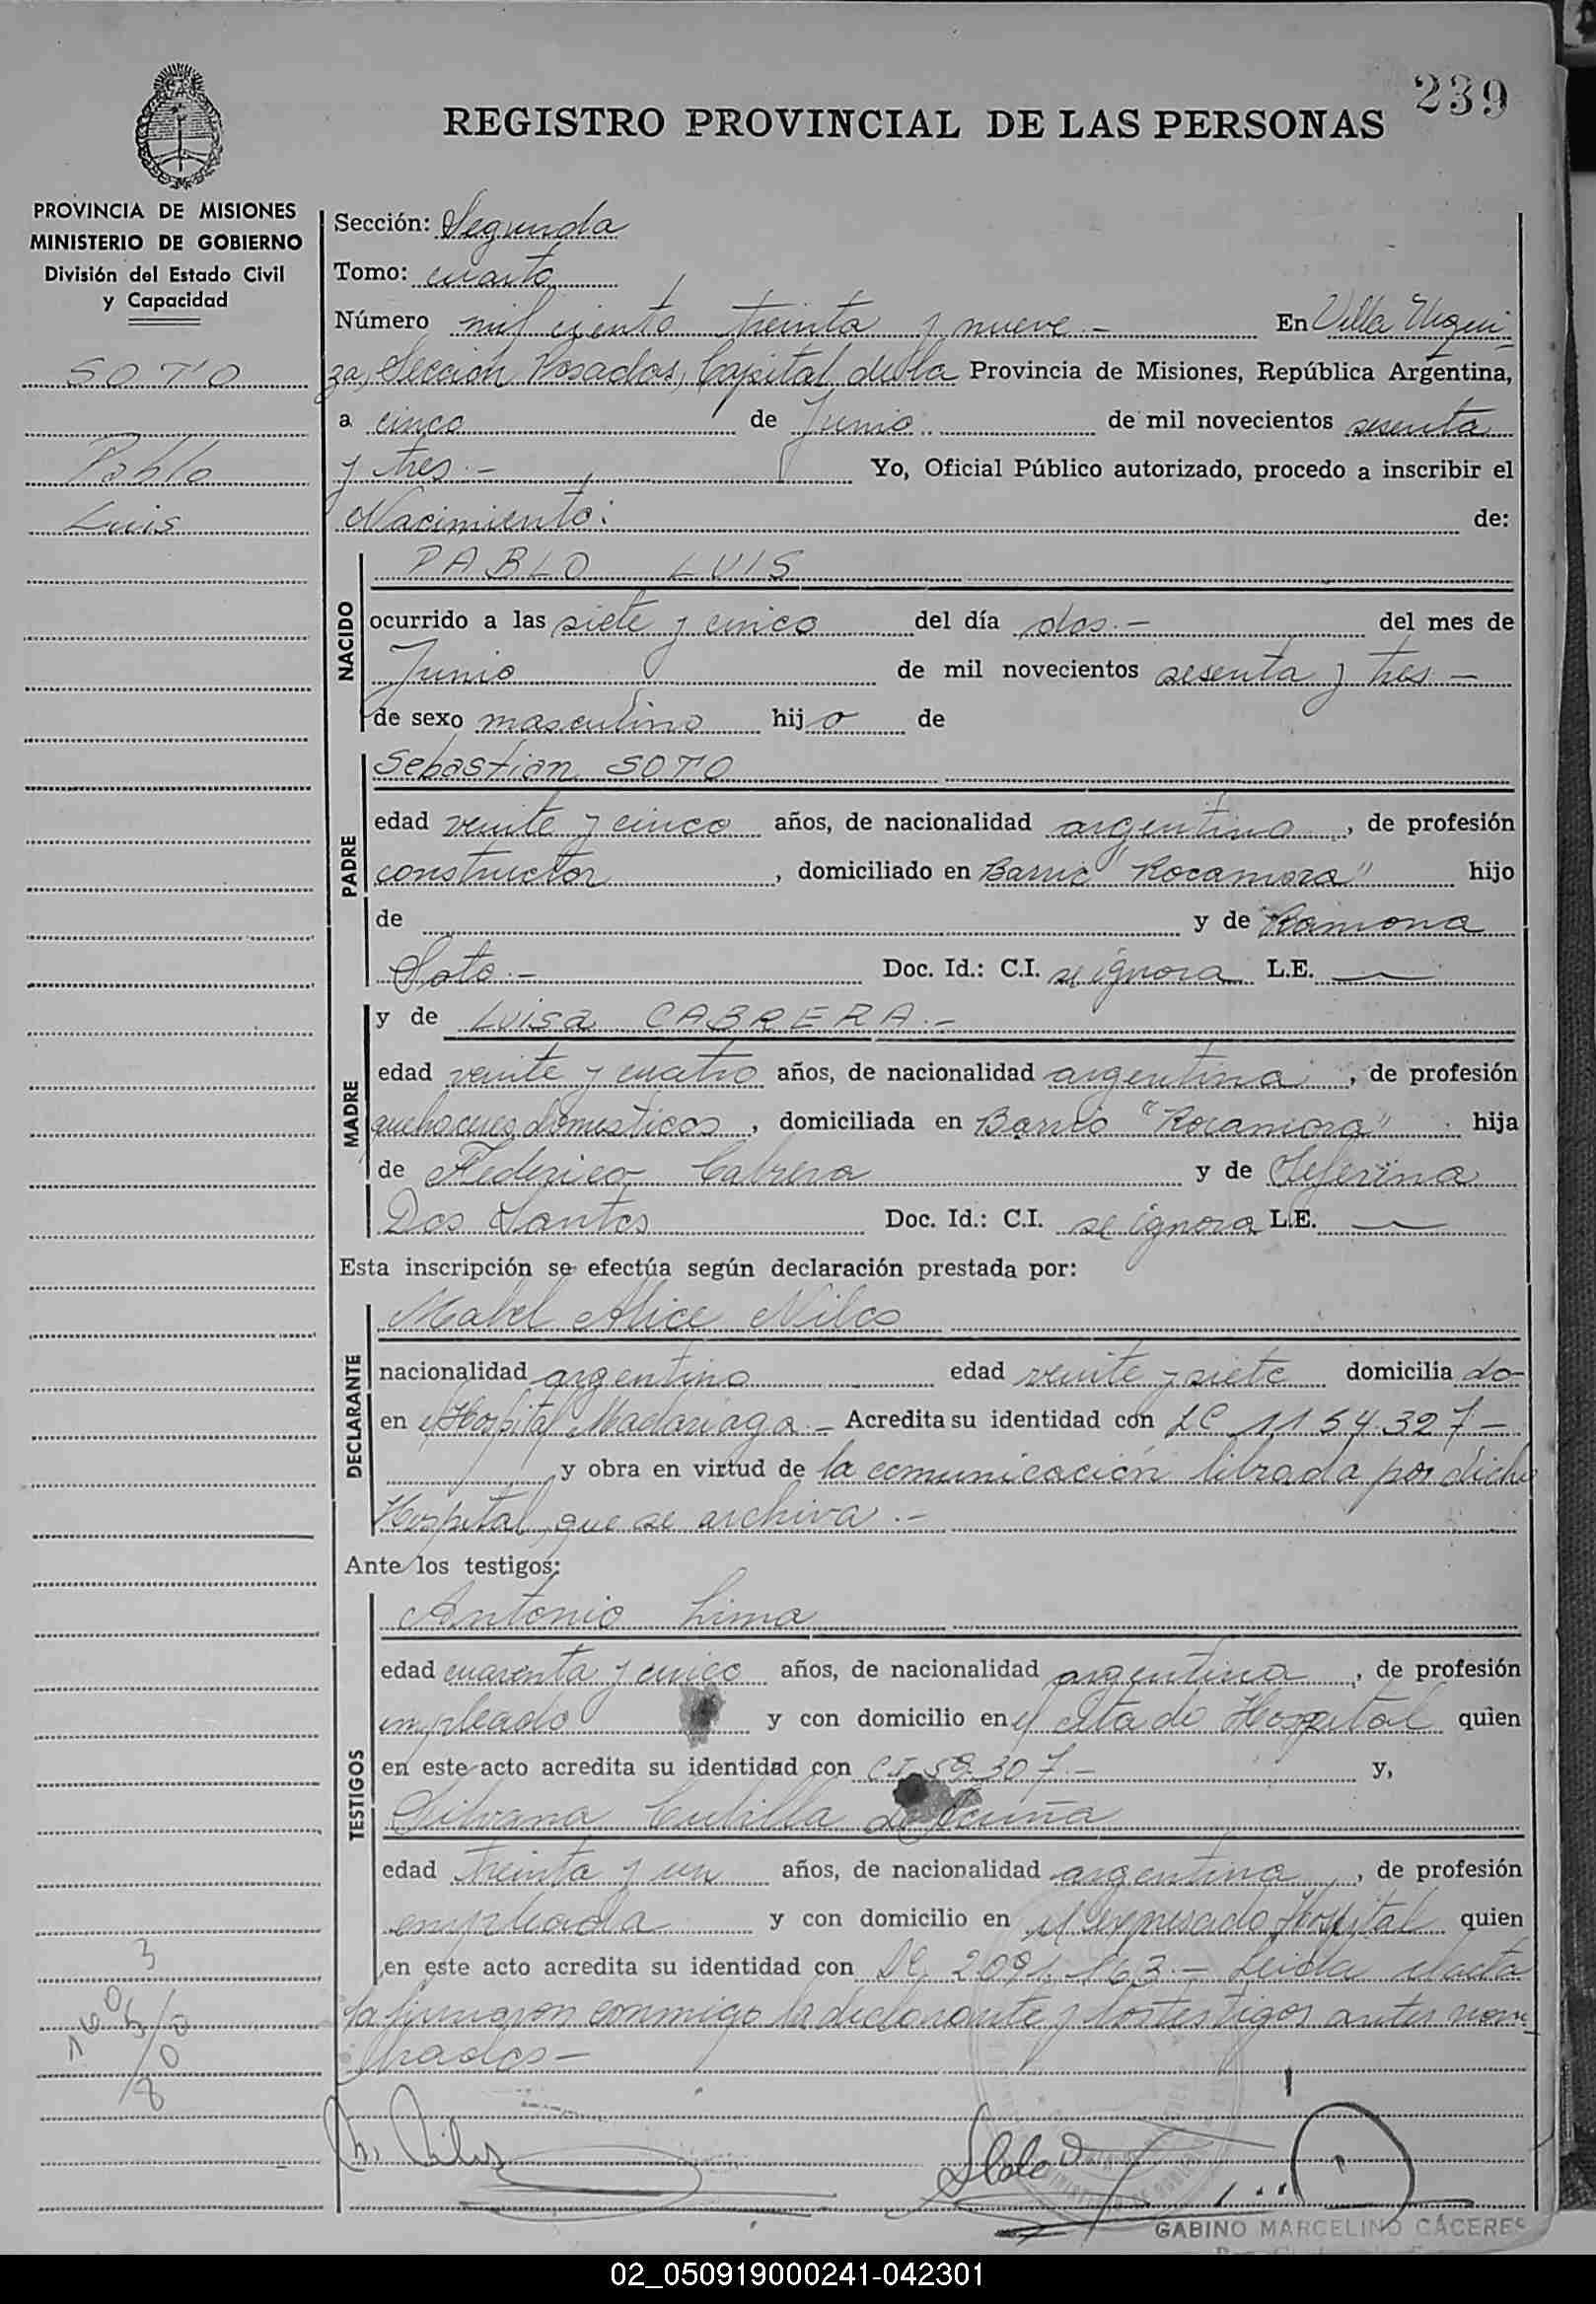 239
REGISTRO PROVINCIAL DE LAS PERSONAS
PROVINCIA DE MISIONES
MINISTERIO DE GOBIERNO
División del Estado Civil
y Capacidad
SOTO
Pablo
Luis
Sección: Segunda
Tomo: cuarto
Número mil ciento treinta y nueve.- En Villa Urqui-
za, Sección Posadas, Capital de la Provincia de Misiones, República Argentina,
a cinco de Junio de mil novecientos sesenta
y tres.- Yo, Oficial Público autorizado, procedo a inscribir el
Nacimiento: de:
NACIDO
PABLO LUIS
ocurrido a las siete y cinco del día dos.- del mes de
Junio de mil novecientos sesenta y tres.-
de sexo masculino hijo de
PADRE
Sebastian SOTO
edad veinte y cinco años, de nacionalidad argentino, de profesión
constructor, domiciliado en Barrio "Rocamora" hijo
de y de Ramona
Soto.- Doc. Id.: C.I. se ignora L.E. —
MADRE
y de Luisa CABRERA.-
edad veinte y cuatro años, de nacionalidad argentina, de profesión
quehaceres domesticos, domiciliada en Barrio "Rocamora" hija
de Federico Cabrera y de Seferina
Dos Santos Doc. Id.: C.I. se ignora L.E. —
Esta inscripción se efectúa según declaración prestada por:
DECLARANTE
Mabel Alice Nilos
nacionalidad argentino edad veinte y siete domicilia do-
en el Hospital Madariaga.- Acredita su identidad con LC 1154.327-
y obra en virtud de la comunicación librada por dicho
Hospital, que se archiva.-
Ante los testigos:
TESTIGOS
Antonio Lima
edad cuarenta y cinco años, de nacionalidad argentina, de profesión
empleado y con domicilio en el citado Hospital quien
en este acto acredita su identidad con C.I. 59.307.- y,
Silvana Cubilla de Acuña
edad treinta y un años, de nacionalidad argentina, de profesión
empleada y con domicilio en el expresado Hospital quien
en este acto acredita su identidad con 2.091.163.- Leida el acta
la firmaron conmigo la declarante y los testigos antes nom-
brados-
GABINO MARCELINO CÁCERES
02_050919000241-042301